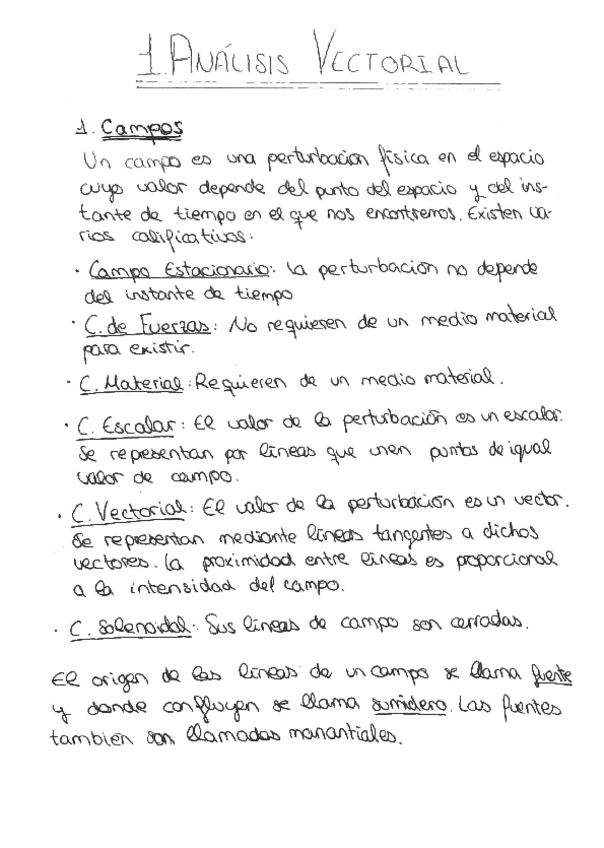 1. ANÁLISIS VECTORIAL
1. Campos
Un campo es una perturbación física en el espacio
cuyo valor depende del punto del espacio y del ins-
tante de tiempo en el que nos encontremos. Existen va-
rios calificativos:
· Campo Estacionario: La perturbación no depende
del instante de tiempo
· C. de Fuerzas: No requieren de un medio material
para existir.
· C. Material: Requieren de un medio material.
· C. Escalar: El valor de la perturbación es un escalar.
Se representan por líneas que unen puntos de igual
valor de campo.
· C. Vectorial: El valor de la perturbación es un vector.
Se representan mediante líneas tangentes a dichos
vectores. La proximidad entre líneas es proporcional
a la intensidad del campo.
· C. Solenoidal: Sus líneas de campo son cerradas.
El origen de las líneas de un campo se llama fuente
y donde confluyen se llama sumidero. Las fuentes
tambien son llamadas manantiales.